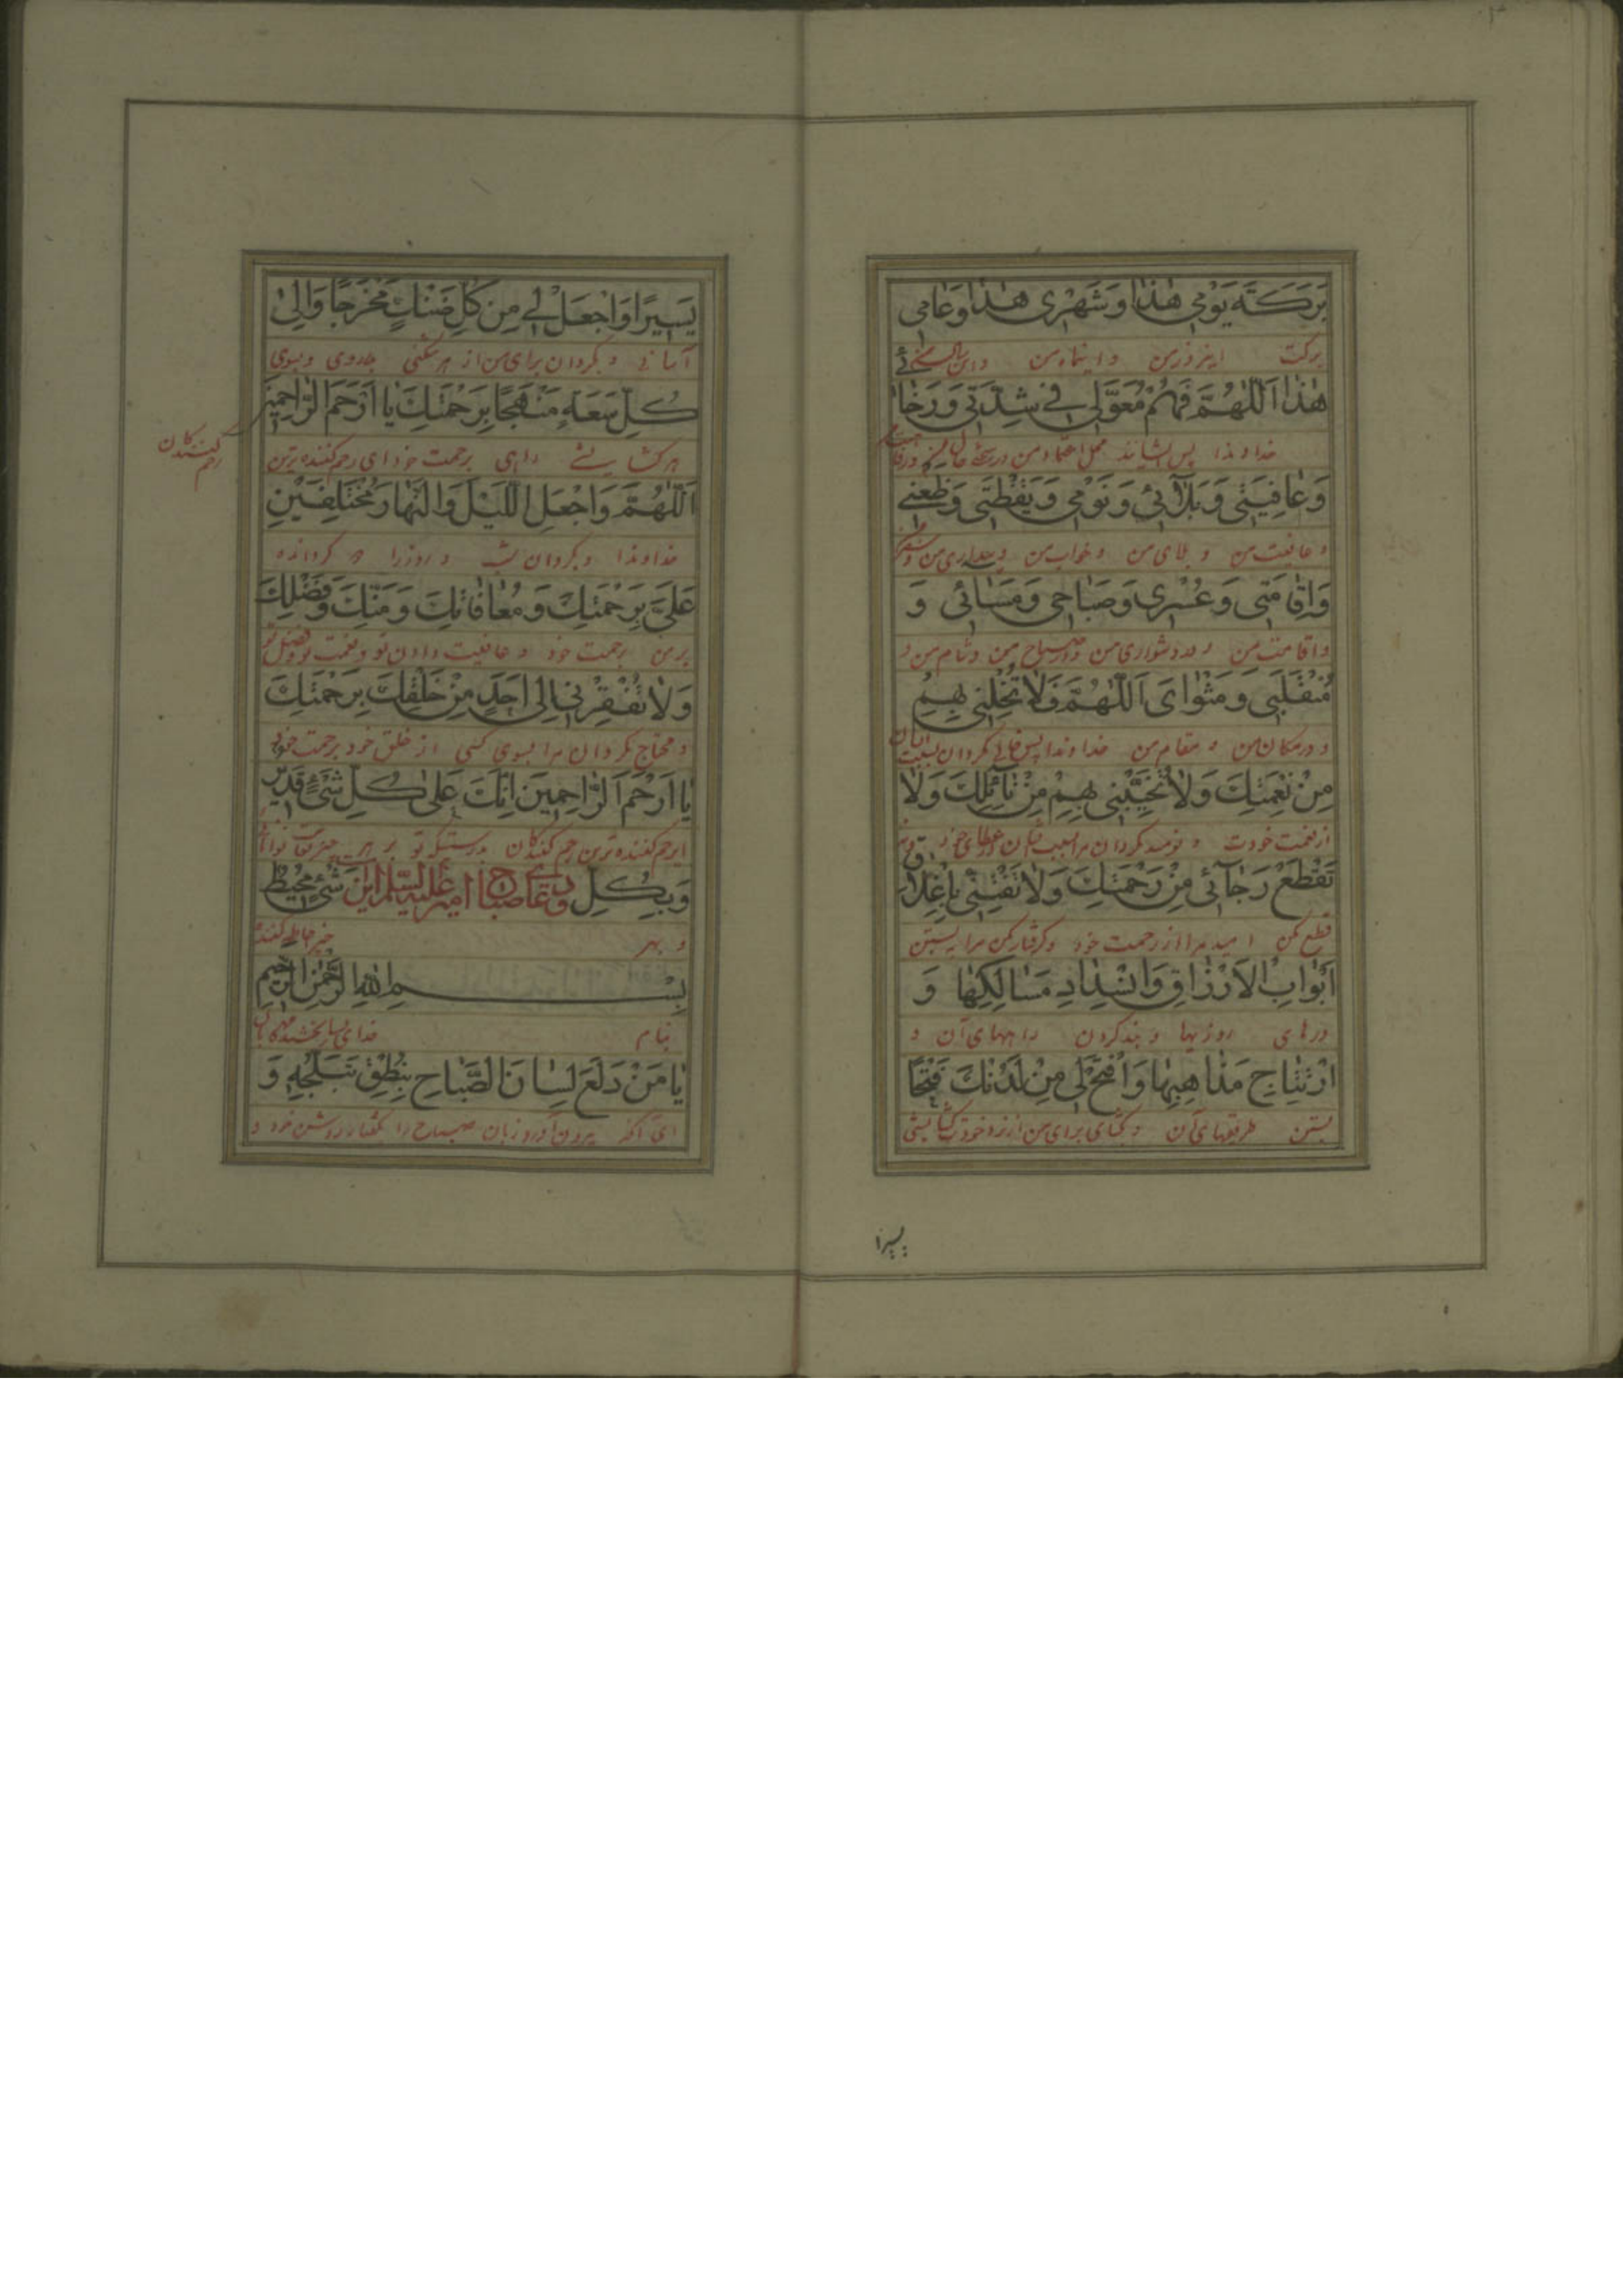 بَرَكَةَ يَوْمي هٰذا وَشَهْري هٰذا وَعٰامي
بركت اينروز من و اينماه من و اين سال من
هٰذا اَللّٰهُمَّ فَهُمْ مُعَوَّلي في شِدَّتي وَرَخٰائي
خداوندا پس ايشانند محل اعتماد من در سختی
وَعٰافِيَتي وَبَلٰائي وَنَوْمي وَيَقْظَتي وَظَعْني
و عافيت من و بلای من و خواب من و بيداری من و سفر من
وَاِقٰامَتي وَعُسْري وَصَبٰاحي وَمَسٰائي وَ
و اقامت من و در دشواری من و در صباح من و شام من و
مُنْقَلَبي وَمَثْوٰايَ اَللّٰهُمَّ فَلٰا تُخْلِني بِهِمْ
و در مكان من و مقام من خداوندا پس خالی مگردان بسبب ايشان
مِنْ نِعْمَتِكَ وَلٰا تُخَيِّبْني بِهِمْ مِنْ نٰائِلِكَ وَلٰا
از نعمت خودت و نوميد مگردان مرا بسبب ايشان از عطای خود و
تَقْطَعْ رَجٰائي مِنْ رَحْمَتِكَ وَلٰا تَفْتِنّي بِاِغْلٰاقِ
قطع مكن اميد مرا از رحمت خود و گرفتار مكن مرا ببستن
اَبْوٰابِ الْاَرْزٰاقِ وَانْسِدٰادِ مَسٰالِكِهٰا وَ
درهای روزيها و بند كردن راههای آن و
ارْتِتٰاجِ مَذٰاهِبِهٰا وَافْتَحْ لي مِنْ لَدُنْكَ فَتْحًا
بستن طريقهای آن و بگشای برای من از نزد خودت گشايشی
يسيرا
يَسيرًا وَاجْعَلْ لي مِنْ كُلِّ ضَنْكٍ مَخْرَجًا وَاِلىٰ
آسانی و بگردان برای من از هر تنگی بدروی و بسوی
كُلِّ سَعَةٍ مَنْهَجًا بِرَحْمَتِكَ يٰا اَرْحَمَ الرّٰاحِمينَ
هر گشايشی راهی برحمت خود ای رحم كننده ترين
رحم كنندگان
اَللّٰهُمَّ وَاجْعَلِ اللَّيْلَ وَالنَّهٰارَ مُخْتَلِفَيْنِ
خداوندا و بگردان شب و روز را
عَلَيَّ بِرَحْمَتِكَ وَمُعٰافٰاتِكَ وَمَنِّكَ وَفَضْلِكَ
بر من برحمت خود و عافيت دادن تو و نعمت تو و فضل تو
وَلٰا تُفْقِرْني اِلىٰ اَحَدٍ مِنْ خَلْقِكَ بِرَحْمَتِكَ
و محتاج مگردان مرا بسوی كسی از خلق خود برحمت خود
يٰا اَرْحَمَ الرّٰاحِمينَ اِنَّكَ عَلىٰ كُلِّ شَيْءٍ قَديرٌ
ای رحم كننده ترين رحم كنندگان بدرستيكه تو بر هر چيز توانائی
وَبِكُلِّ دعای صباح امير عليه السلم شَيْءٍ مُحيطٌ
و بهر چيز احاطه كننده
بِسْمِ اللهِ الرَّحْمٰنِ الرَّحيمِ
بنام خدای بخشنده مهربان
يٰا مَنْ دَلَعَ لِسٰانَ الصَّبٰاحِ بِنُطْقِ تَبَلُّجِهِ وَ
ای آنكه بيرون آورد زبان صباح را بگفتار روشن خود و